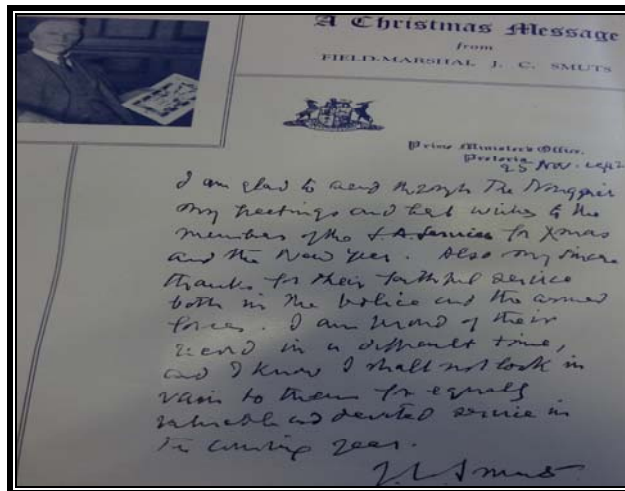 A Christmas Message
from
FIELD-MARSHAL J. C. SMUTS
Prime Minister's Office,
Pretoria
25 Nov. 1942
I am glad to send through The Nongqai
my greetings and best wishes to the
members of the S.A. Services for Xmas
and the New Year. Also my sincere
thanks for their faithful service
both in the Police and the armed
forces. I am proud of their
record in a difficult time,
and I know I shall not look in
vain to them for equally
valuable and devoted service in
the coming year.
J. C. Smuts